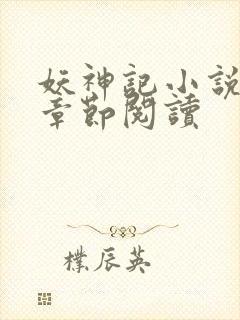 妖神記小說
章節閱讀
樸辰英